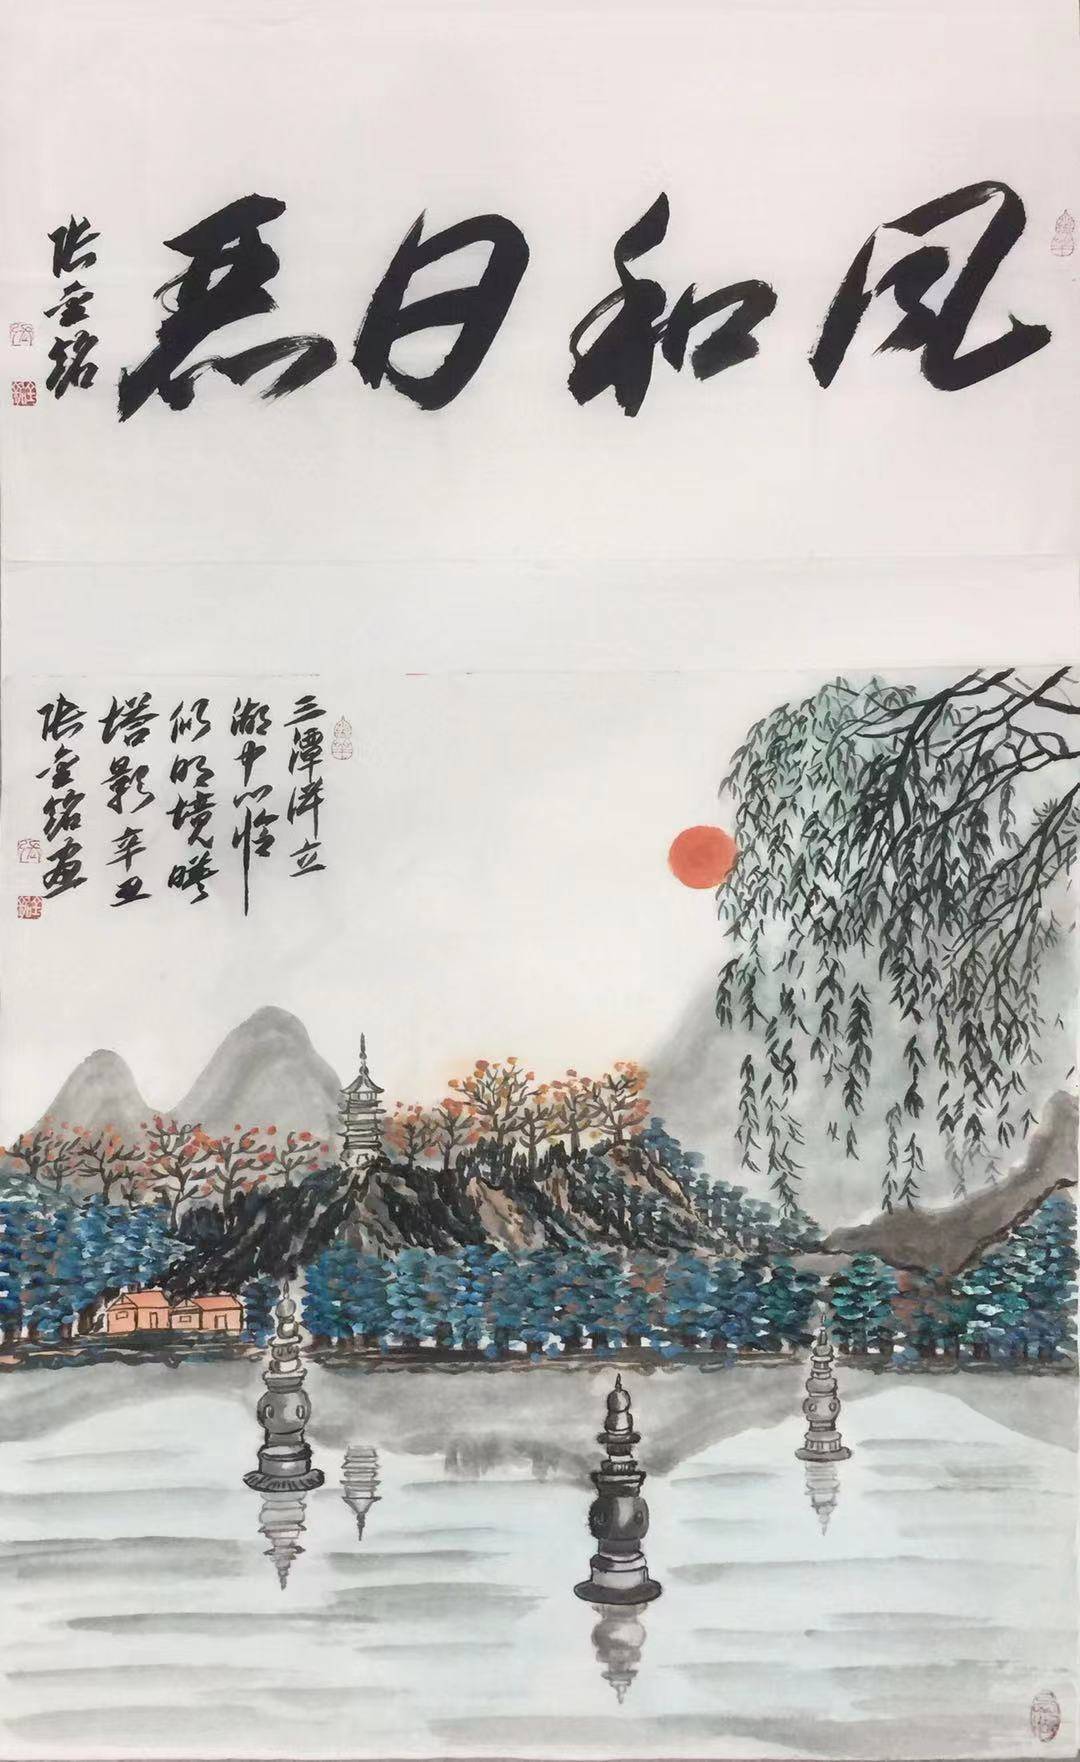 风和日丽
张金铭
三潭洋立
湖中心恰
似明境映
塔影辛丑
张金铭画